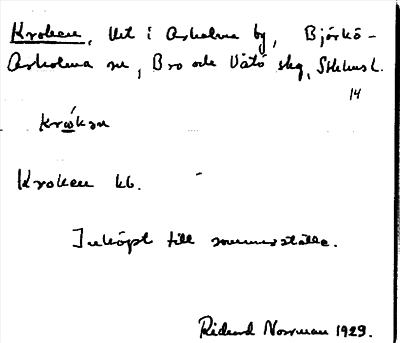 Kroken, lht i Arholma by, Björkö-
Arholma sn, Bro och Vätö skg, Sthlms l.
14
Kroken kb.
Inköpt till sommarställe.
Richard Norrman 1929.